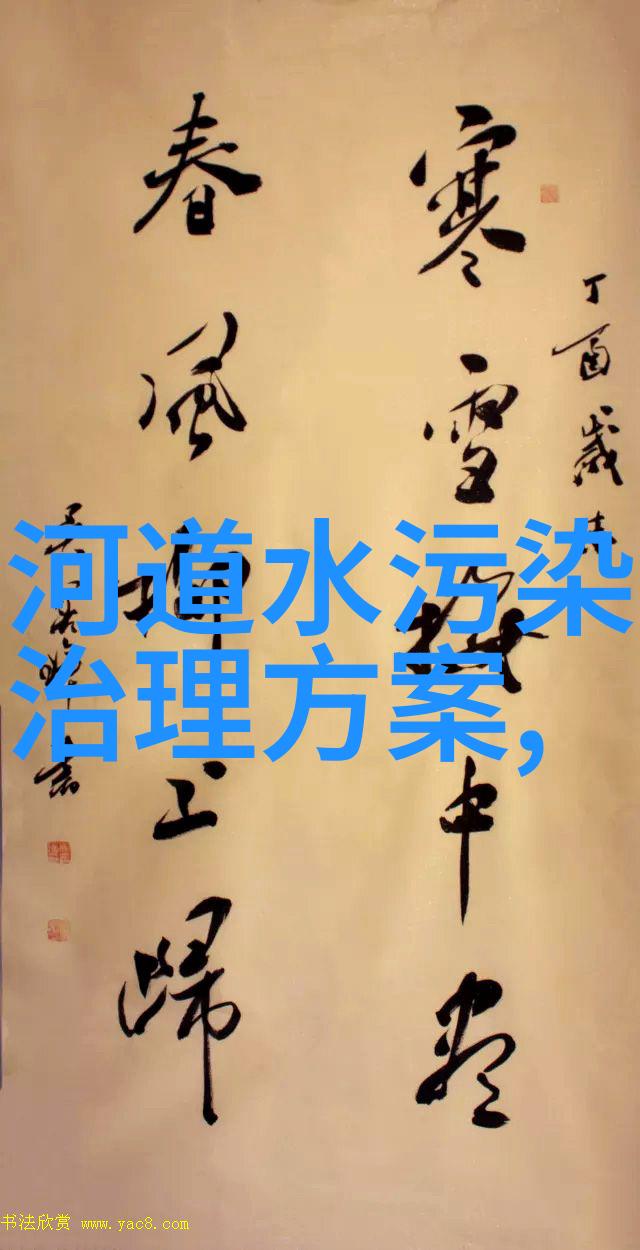 河道水污染
治理方案,
丁酉歲
寒雪梅中尽
春風柳上歸
书法欣赏 www.yac8.com